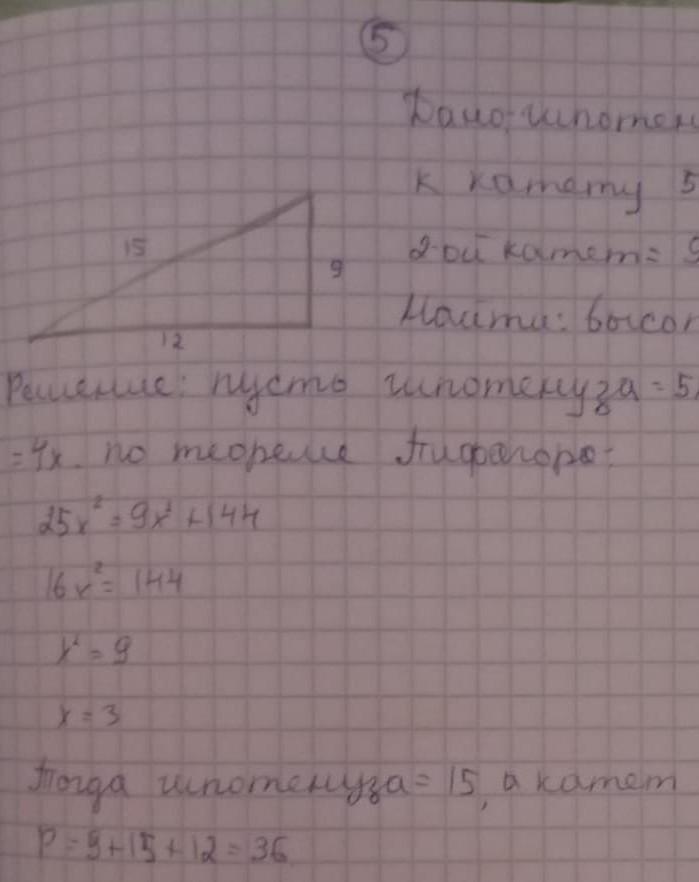 5
Дано: гипотен
к катету 5
2-ой катет = 9
Найти: высот
15
9
12
Решение: пусть гипотенуза = 5
= 4x. по теореме Пифагора:
25x² = 9x² + 144
16x² = 144
x² = 9
x = 3
Тогда гипотенуза = 15, а катет
P = 9 + 15 + 12 = 36